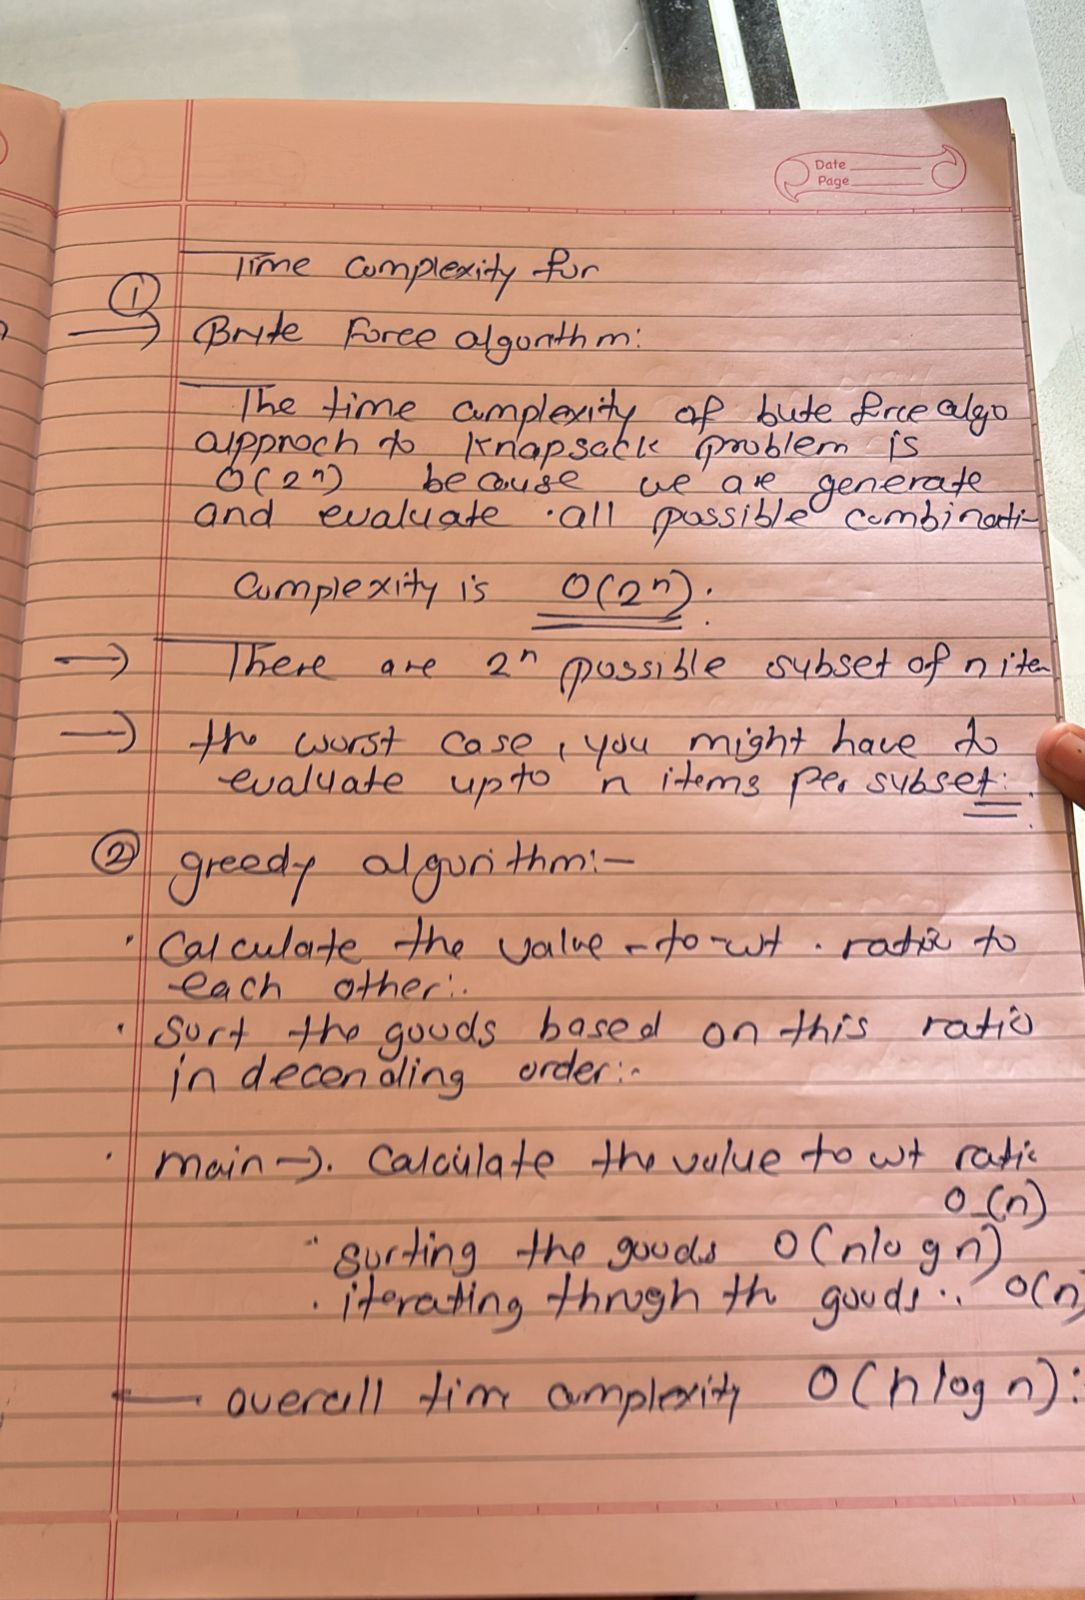 Date
Page
Time complexity for
① 
→ Brute Force algorithm:
The time complexity of bute force algo
approch to Knapsack problem is
O(2ⁿ) because we are generate
and evaluate all possible combinati-
Complexity is O(2ⁿ).
→ There are 2ⁿ possible subset of n ite
→ the worst case, you might have to
evaluate upto n items per subset:
② greedy algorithm:-
· Calculate the value-to-wt. ratio to
each other:.
· Sort the goods based on this ratio
in decending order:-
· main →. Calculate the value to wt ratio
O(n)
· Sorting the goods O(nlogn)
· iterating throgh th goods.. O(n)
— overall tim complexity O(nlogn):